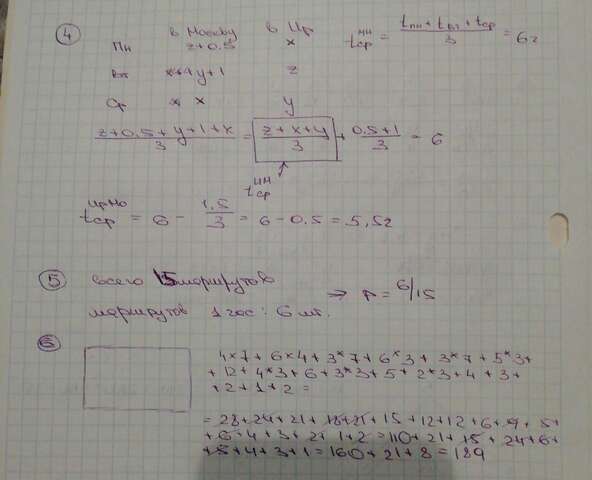 ④ в Москву в Ир
Пн z+0.5 x t ср нм = (t пн + t вт + t ср)/3 = 6г
Вт y+1 z
Ср x y
(z+0.5+y+1+x)/3 = (z+x+y)/3 + (0.5+1)/3 = 6
t ср
t ср = 6 - 1,5/3 = 6 - 0.5 = 5,5г
⑤ всего 15 маршрутов => p = 6/15
маршрутов 1 час : 6 шт.
⑥ 4*7 + 6*4 + 3*7 + 6*3 + 3*7 + 5*3 +
+ 12 + 4*3 + 6 + 3*3 + 5 + 2*3 + 4 + 3 +
+ 2 + 1 + 2 =
= 28 + 24 + 21 + 18 + 21 + 15 + 12 + 12 + 6 + 9 + 5 +
+ 6 + 4 + 3 + 2 + 1 + 2 = 110 + 21 + 15 + 24 + 6 +
+ 5 + 4 + 3 + 1 = 160 + 21 + 8 = 189